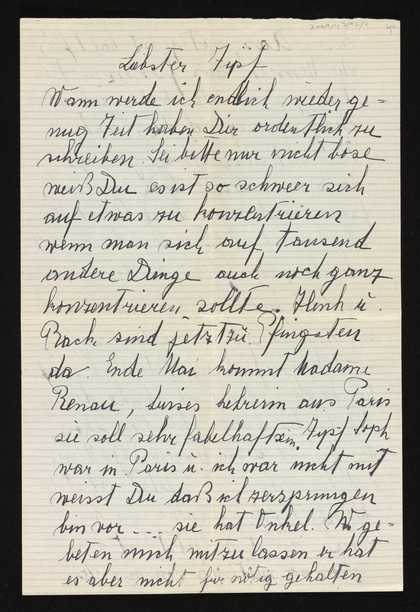 Liebster Zipf
Wann werde ich endlich wieder ge=
nug Zeit haben Dir ordentlich zu
schreiben. Sei bitte nur nicht böse
weißt Du es ist so schweer sich
auf etwas zu konzentrieren
wenn man sich auf tausend
andere Dinge auch noch ganz
konzentrieren sollte. Henk u.
Rach sind jetzt zu Pfingsten
da. Ende Mai kommt Madame
Renau, Luises Lehrerin aus Paris
sie soll sehr fabelhaft sein. Zipf Soph
war in Paris u. ich war nicht mit
weisst Du daß ich zerzprungen
bin vor .... sie hat Onkel. W. ge-
beten mich mitzulassen er hat
es aber nicht für nötig gehalten